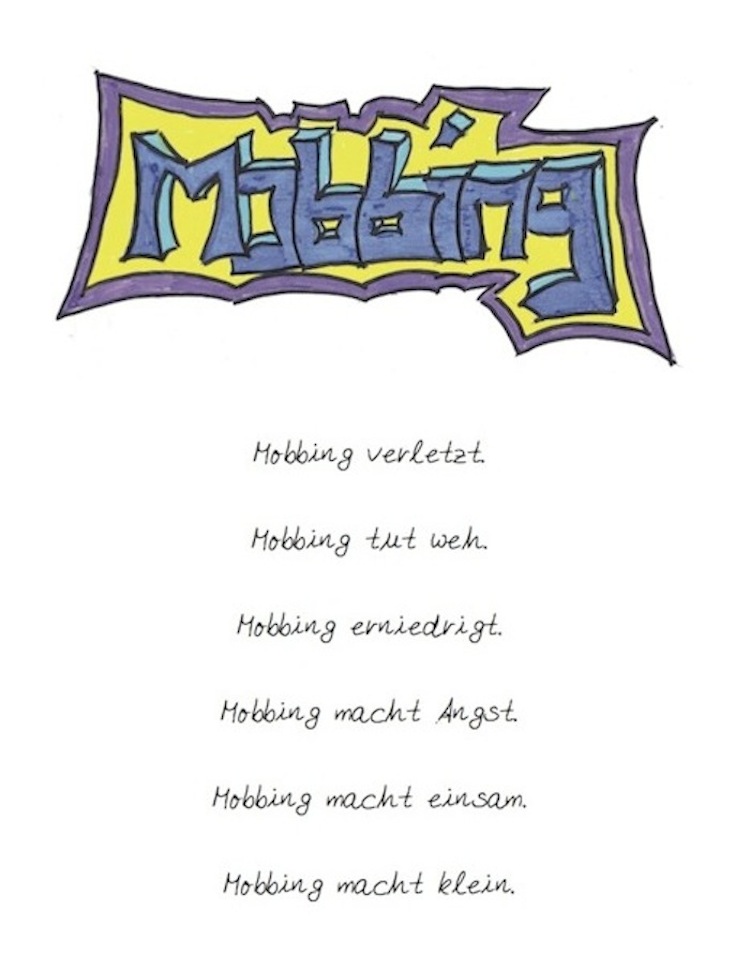 Mobbing
Mobbing verletzt.
Mobbing tut weh.
Mobbing erniedrigt.
Mobbing macht Angst.
Mobbing macht einsam.
Mobbing macht klein.